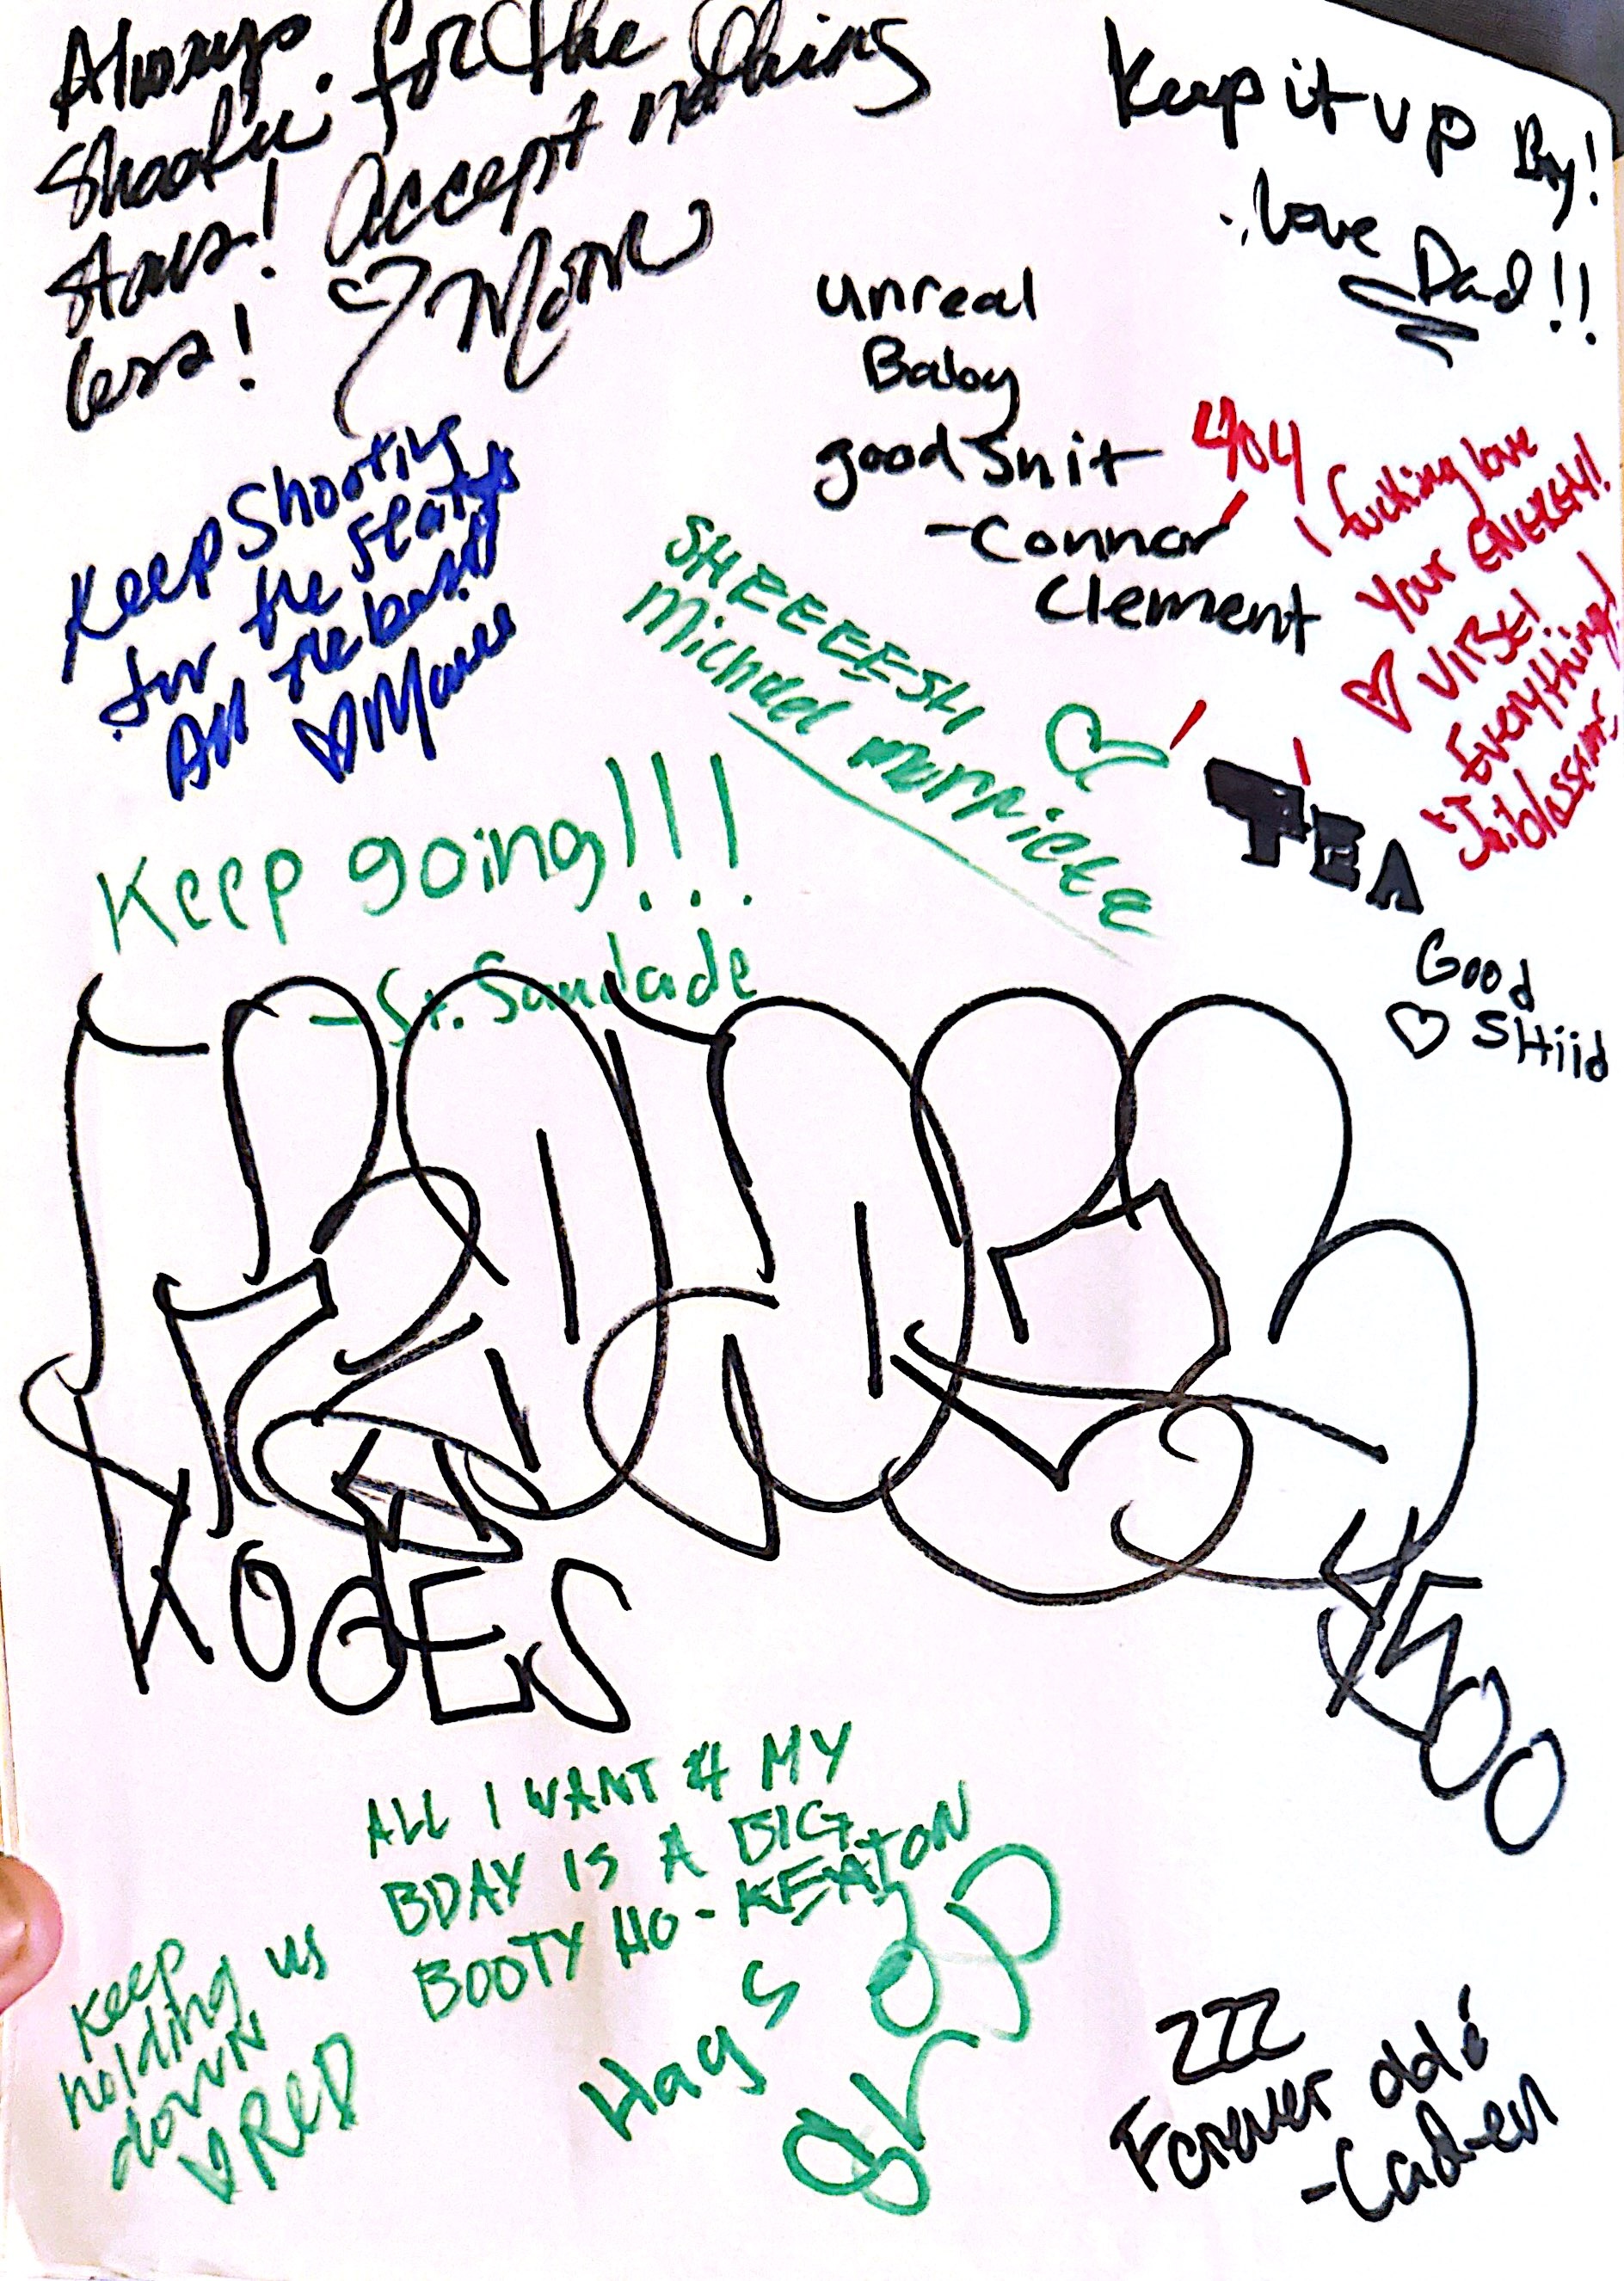 Always
Shootin. for the
stars! Accept nothing
less! ♡ Mom
Keep it up Bry!
Love Dad!!
unreal
Baby
good Shit
-Connor
Clement
404
I fucking love
Your ENERGY!
♡ VIBE!
Everything!
Keep Shooting
for the stars
All the best
♡
SHEEEESH
Michael Morricee
TEA
Good
♡ SHiid
Keep going!!!
-Sr. Saudade
KOdES
4500
ALL I WANT 4 MY
BDAY IS A BIG
BOOTY HO - KEATON
Keep
holding us
down
♡ RED
Hags
ZZZ
Forever odd
-Caden